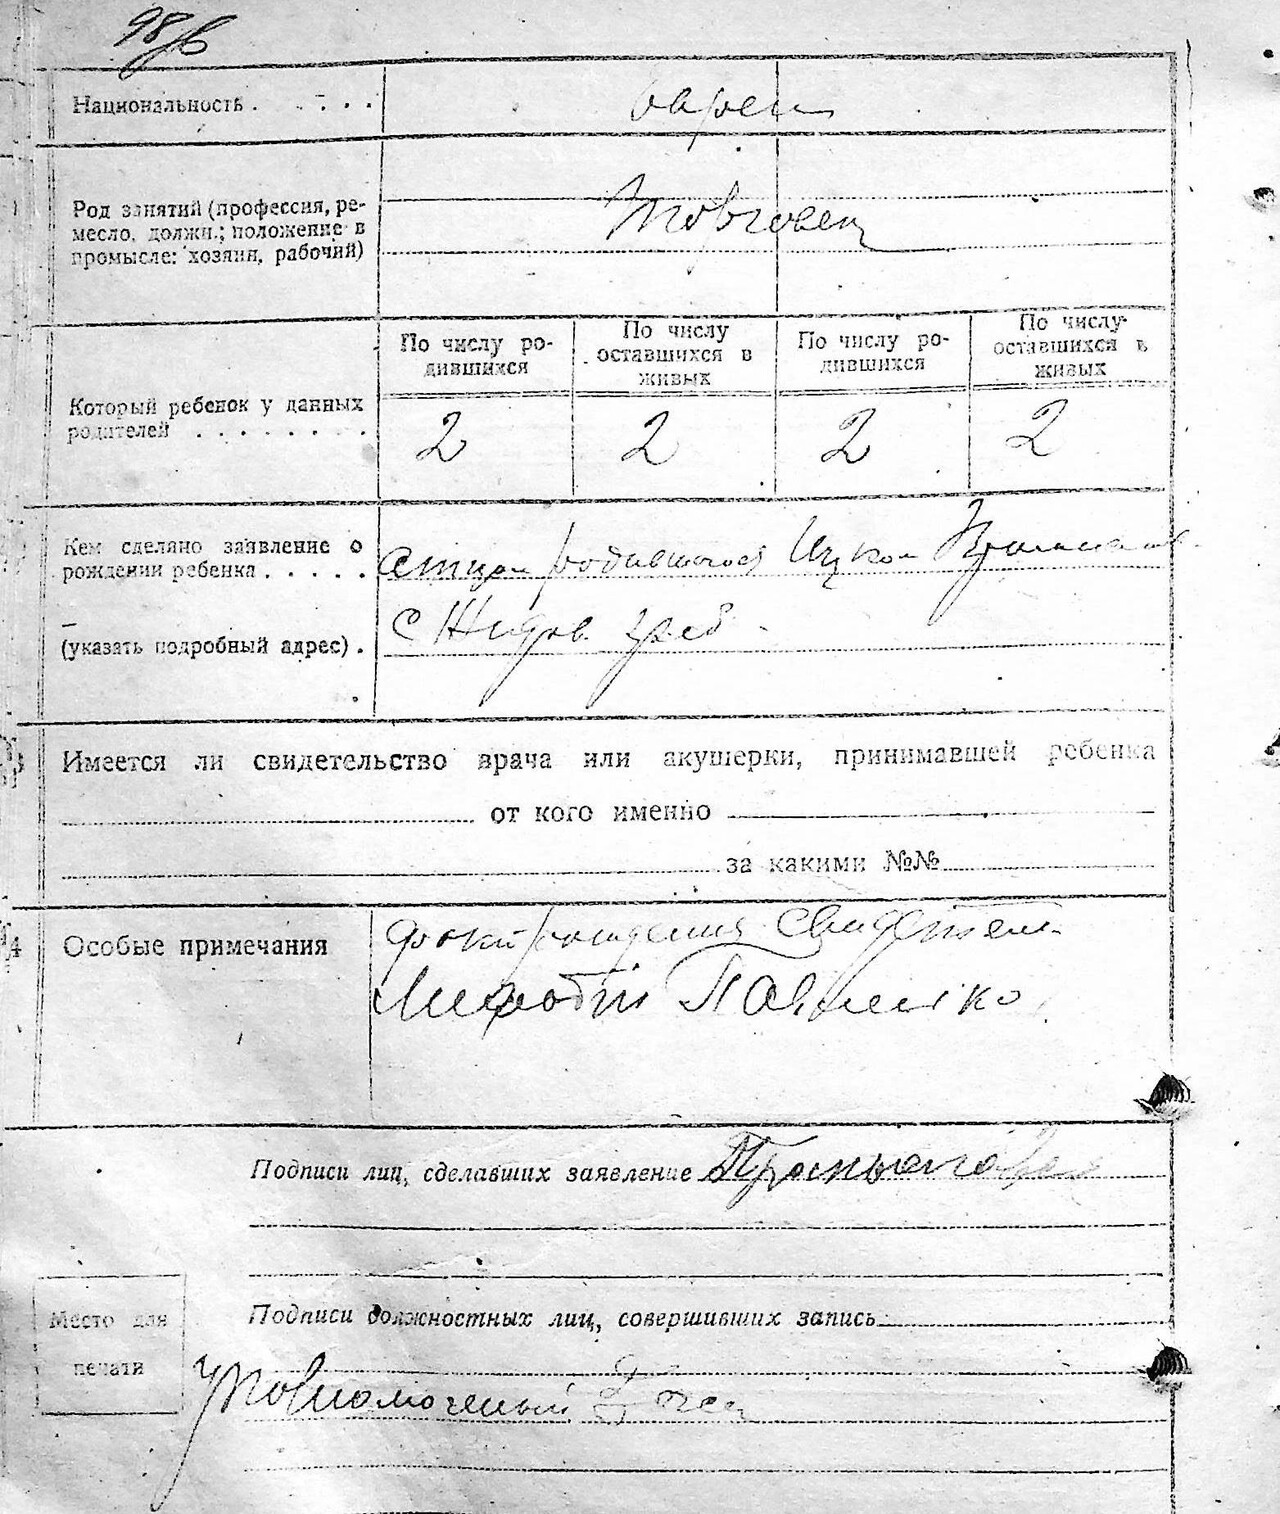 98/б
Национальность . . . . . .
еврей
Род занятий (профессия, ре-
месло, должн.; положение в
промысле: хозяин, рабочий)
По числу ро-
дившихся
По числу
оставшихся в
живых
По числу ро-
дившихся
По числу
оставшихся в
живых
Который ребенок у данных
родителей . . . . . . . .
2 2 2 2
Кем сделано заявление о
рождении ребенка . . . . .
отцом родившегося Ицком
(указать подробный адрес) .
с
Имеется ли свидетельство врача или акушерки, принимавшей ребенка
от кого именно
за какими №№
4 Особые примечания
факт рождения
Павленко
Подписи лиц, сделавших заявление
Подписи должностных лиц, совершивших запись
Место для
печати
Уповномоченый